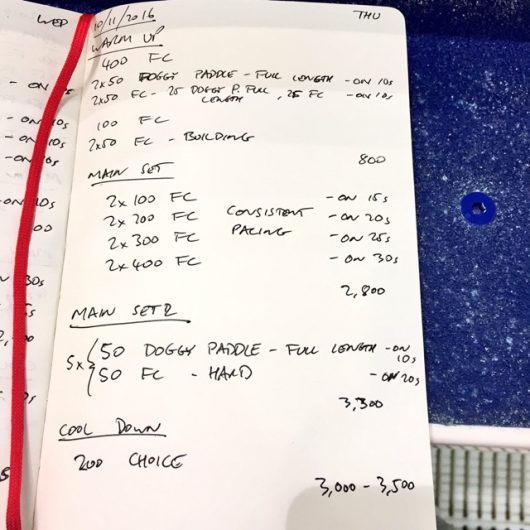 WED
- ON 10s
- ON 10s
- ON 10s
- ON 10s
THU
10/11/2016
WARM UP
400 FC
2x50 DOGGY PADDLE - FULL LENGTH - ON 10s
2x50 FC - 25 DOGGY P. FULL LENGTH, 25 FC - ON 10s
100 FC
2x50 FC - BUILDING
800
MAIN SET
2x100 FC - ON 15s
2x200 FC CONSISTENT - ON 20s
2x300 FC PACING - ON 25s
2x400 FC - ON 30s
2,800
MAIN SET 2
5x { 50 DOGGY PADDLE - FULL LENGTH - ON 10s
50 FC - HARD - ON 20s
3,300
COOL DOWN
200 CHOICE
3,000 - 3,500